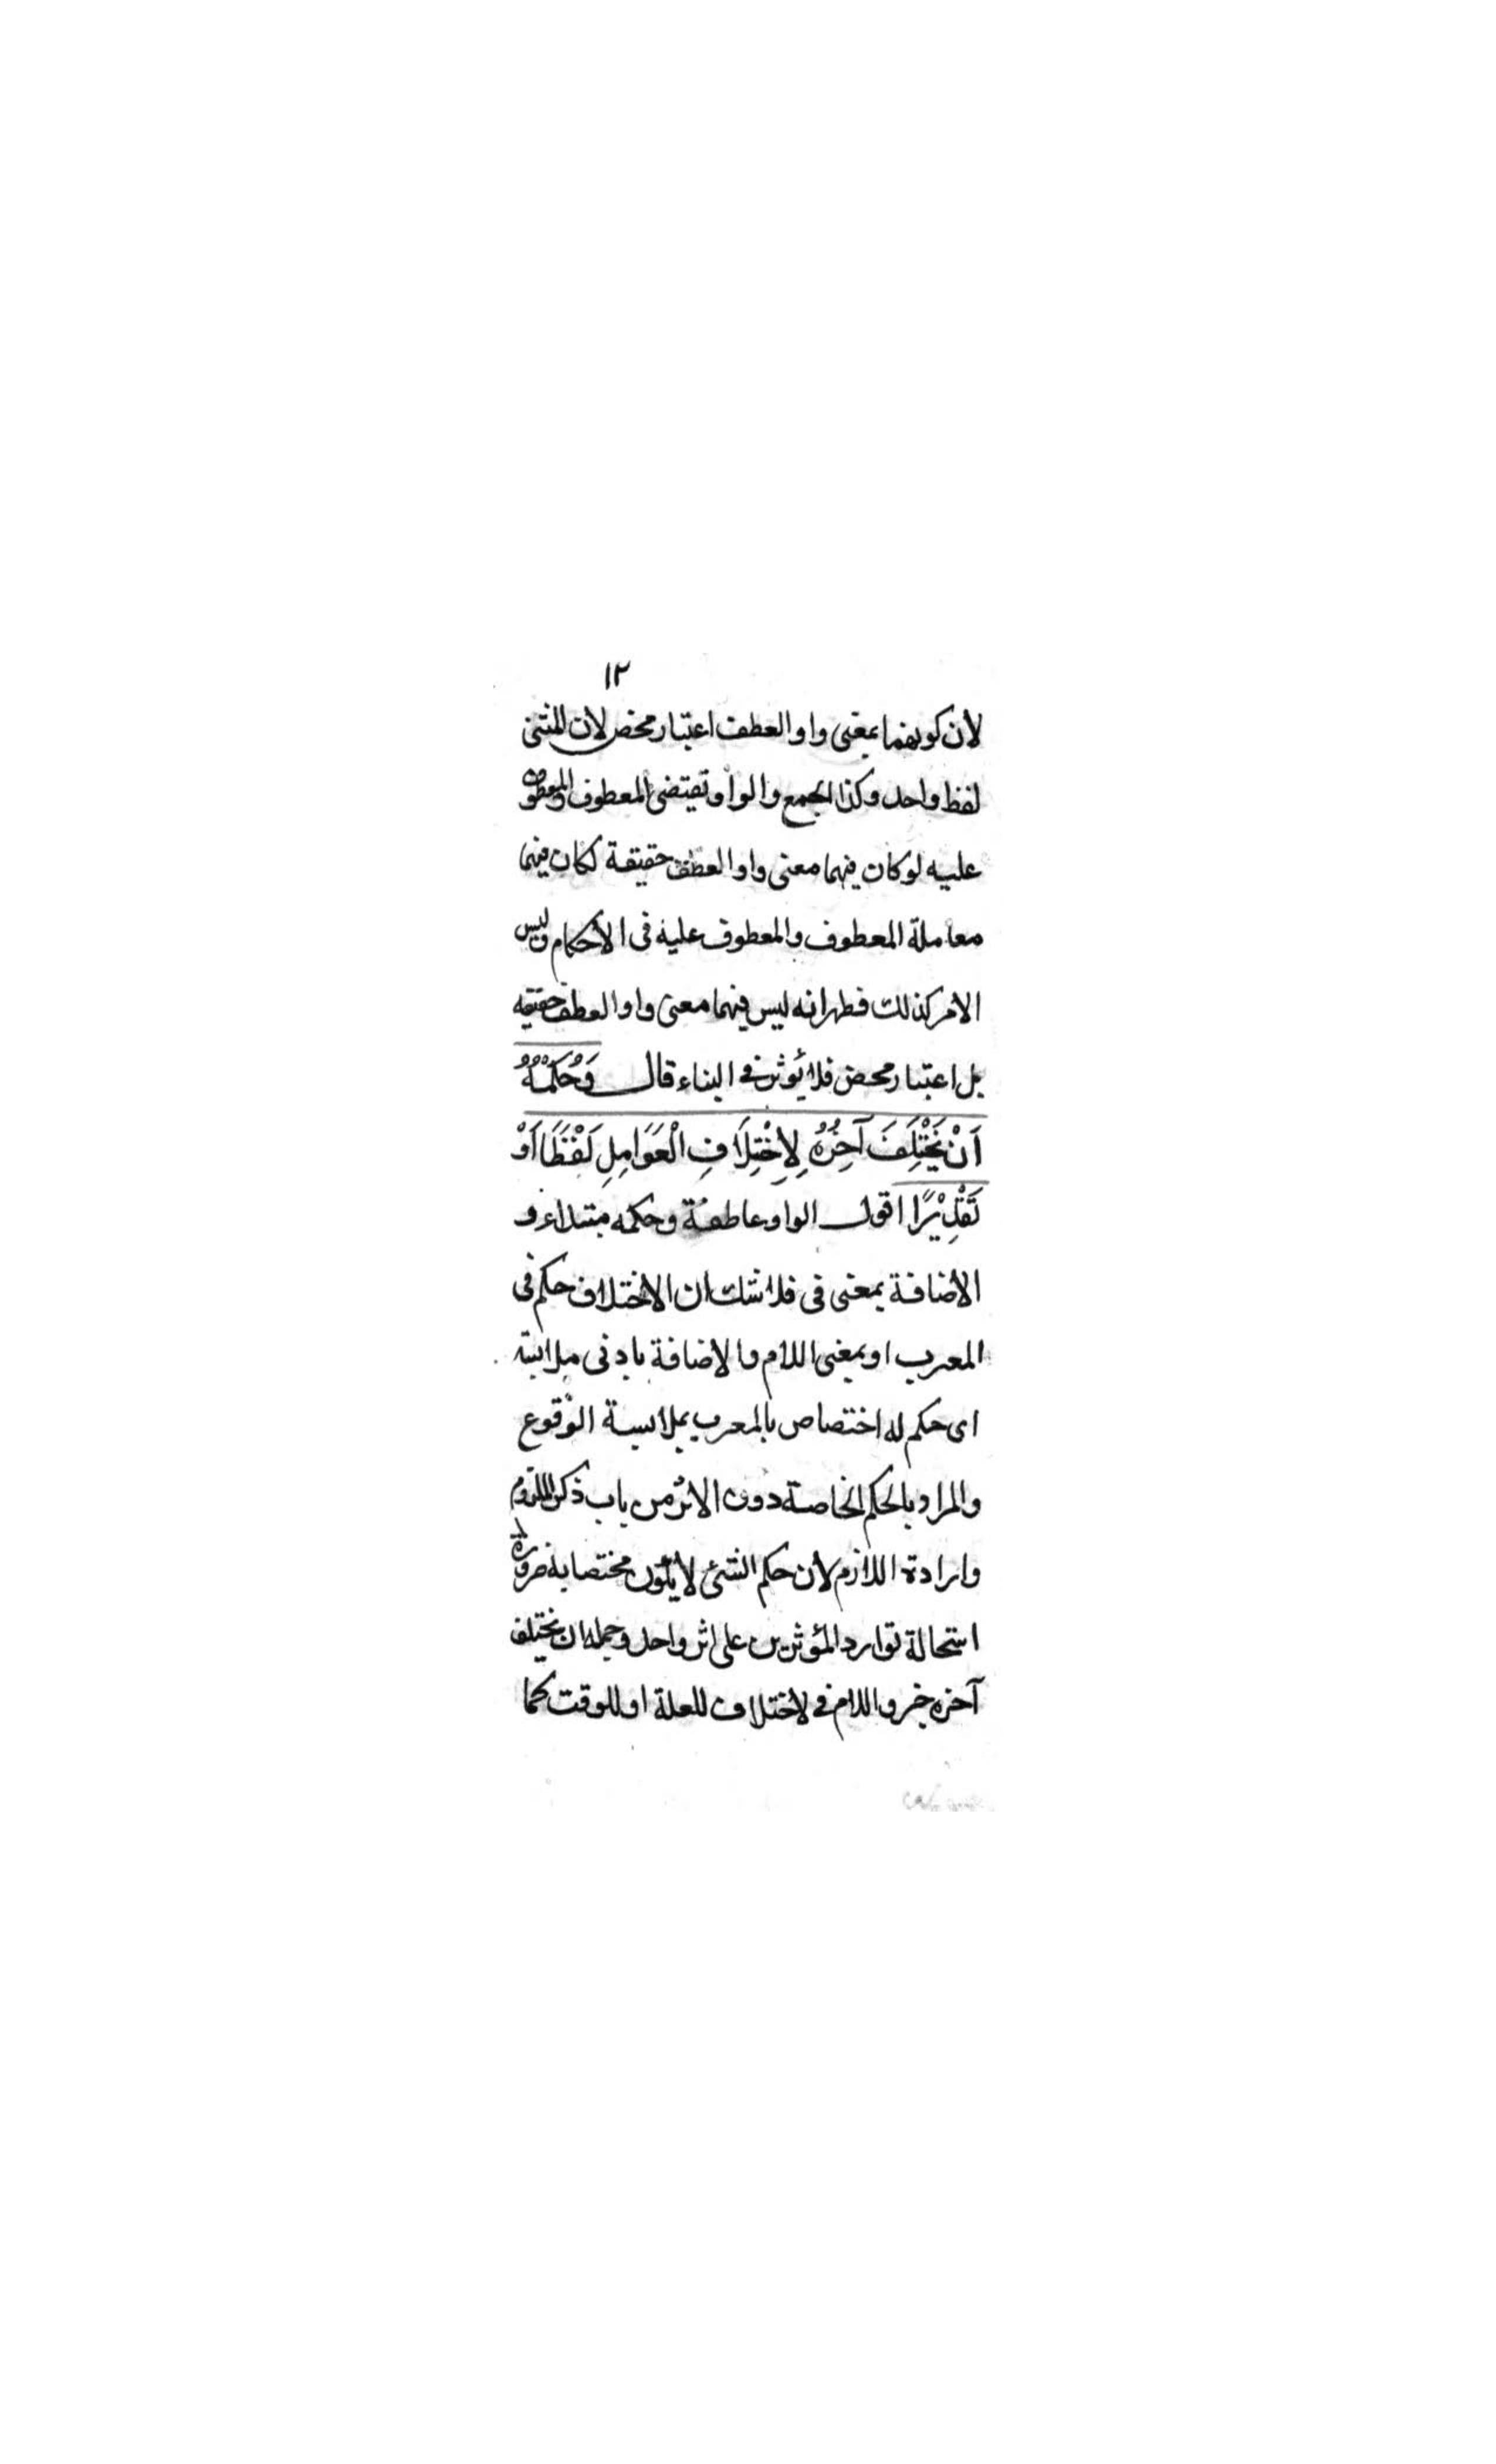 ١٢
لأن كونهما بمعنى واو العطف اعتبار محض لأن المثنى
لفظ واحد وكذا الجمع والواو تقتضى المعطوف والمعطوف
عليه لو كان فيهما معنى واو العطف حقيقة لكان فيهما
معاملة المعطوف والمعطوف عليه فى الأحكام وليس
الامر كذلك فظهر انه ليس فيهما معنى واو العطف حقيقه
بل اعتبار محض فلا يؤثر فى البناء قال وَحُكْمُهُ
اَنْ يَّخْتَلِفَ آخِرُهُ لِاِخْتِلَافِ الْعَوَامِلِ لَفْظًا اَوْ
تَقْدِيْرًا اقول الواو عاطفة وحكمه مبتداء و
الأضافة بمعنى فى فلا شك ان الاختلاف حكم فى
المعرب او بمعنى اللام والاضافة بادنى ملابسة
اى حكم له اختصاص بالمعرب بملابسة الوقوع
والمراد بالحكم الخاصة دون الاثر من باب ذكر الملزوم
وارادة اللازم لأن حكم الشئ لا يكون مختصا به ضرورة
استحالة توارد المؤثرين على اثر واحد وجمله ان يختلف
آخره خبر واللام فى لاختلاف للعلة او للوقت كما